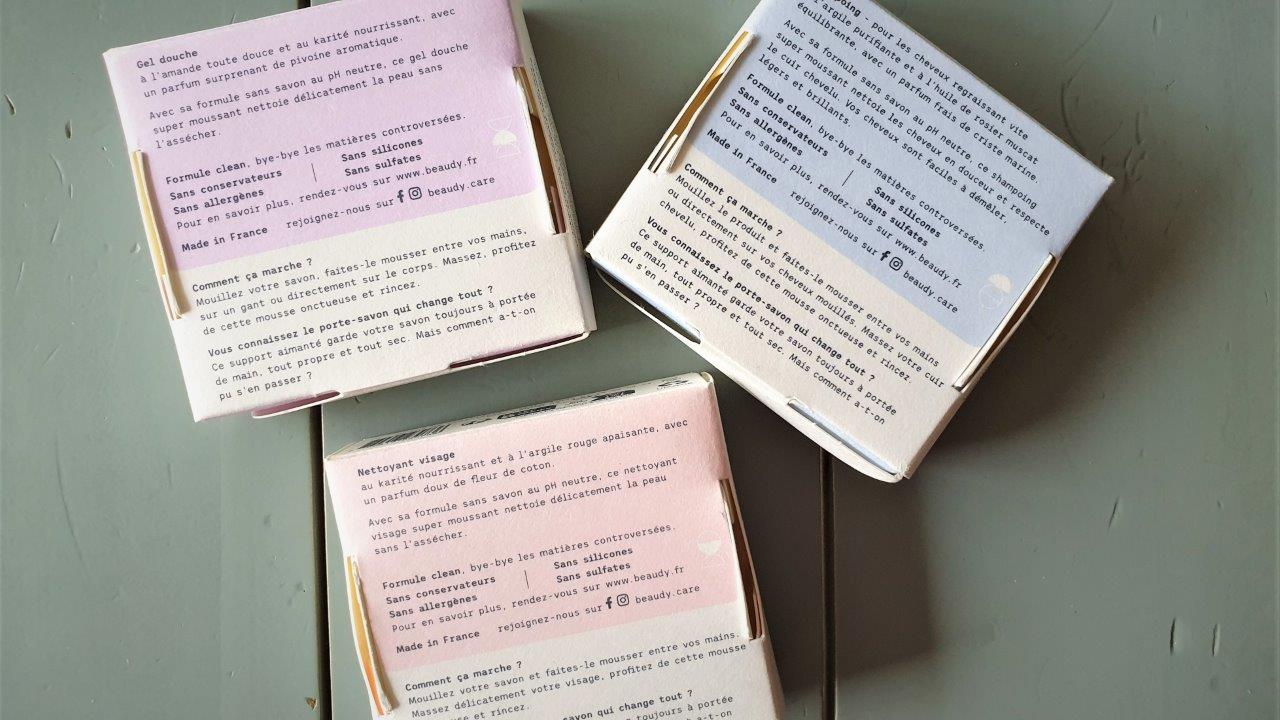 Gel douche
à l'amande toute douce et au karité nourrissant, avec
un parfum surprenant de pivoine aromatique.
Avec sa formule sans savon au pH neutre, ce gel douche
super moussant nettoie délicatement la peau sans
l'assécher.
Formule clean, bye-bye les matières controversées.
Sans conservateurs
Sans allergènes
Sans silicones
Sans sulfates
Pour en savoir plus, rendez-vous sur www.beaudy.fr
Made in France rejoignez-nous sur beaudy.care
Comment ça marche ?
Mouillez votre savon, faites-le mousser entre vos mains,
sur un gant ou directement sur le corps. Massez, profitez
de cette mousse onctueuse et rincez.
Vous connaissez le porte-savon qui change tout ?
Ce support aimanté garde votre savon toujours à portée
de main, tout propre et tout sec. Mais comment a-t-on
pu s'en passer ?
- pour les cheveux regraissant vite
l'argile purifiante et à l'huile de rosier muscat
équilibrante, avec un parfum frais de criste marine.
Avec sa formule sans savon au pH neutre, ce shampoing
super moussant nettoie les cheveux en douceur et respecte
le cuir chevelu. Vos cheveux sont faciles à démêler,
légers et brillants.
Formule clean, bye-bye les matières controversées.
Sans conservateurs
Sans allergènes
Sans silicones
Sans sulfates
Pour en savoir plus, rendez-vous sur www.beaudy.fr
Made in France rejoignez-nous sur beaudy.care
Comment ça marche ?
Mouillez le produit et faites-le mousser entre vos mains
ou directement sur vos cheveux mouillés. Massez votre cuir
chevelu, profitez de cette mousse onctueuse et rincez.
Vous connaissez le porte-savon qui change tout ?
Ce support aimanté garde votre savon toujours à portée
de main, tout propre et tout sec. Mais comment a-t-on
pu s'en passer ?
Nettoyant visage
au karité nourrissant et à l'argile rouge apaisante, avec
un parfum doux de fleur de coton.
Avec sa formule sans savon au pH neutre, ce nettoyant
visage super moussant nettoie délicatement la peau
sans l'assécher.
Formule clean, bye-bye les matières controversées.
Sans conservateurs
Sans allergènes
Sans silicones
Sans sulfates
Pour en savoir plus, rendez-vous sur www.beaudy.fr
Made in France rejoignez-nous sur beaudy.care
Comment ça marche ?
Mouillez votre savon et faites-le mousser entre vos mains.
Massez délicatement votre visage, profitez de cette mousse
et rincez.
qui change tout ?
toujours à portée
a-t-on